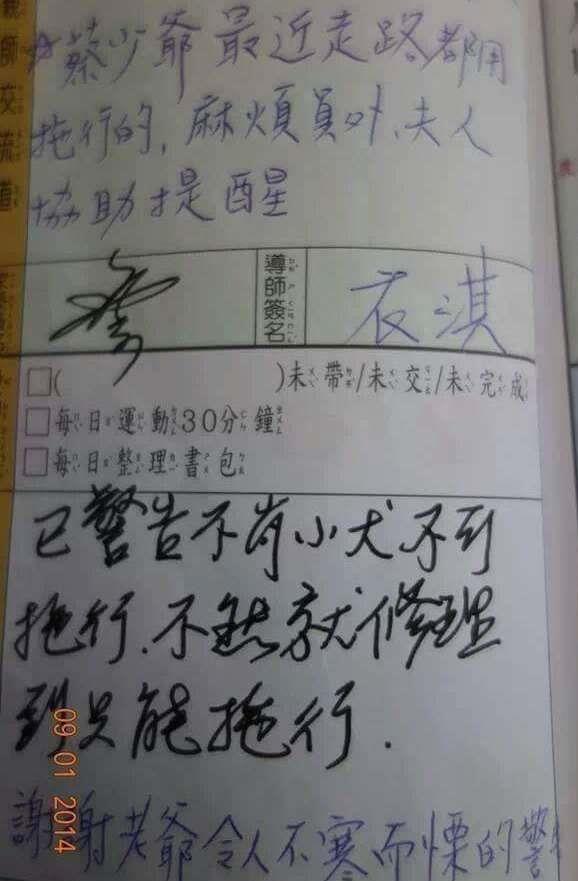 蔡少爺最近走路都用
拖行的,麻煩員外、夫人
協助提醒
親師交流道
導師簽名
衣淇
□( )未帶/未交/未完成
□每日運動30分鐘
□每日整理書包
已警告不肖小犬不可
拖行.不然就修理
到只能拖行.
謝謝老爺令人不寒而慄的警
09.01 2014